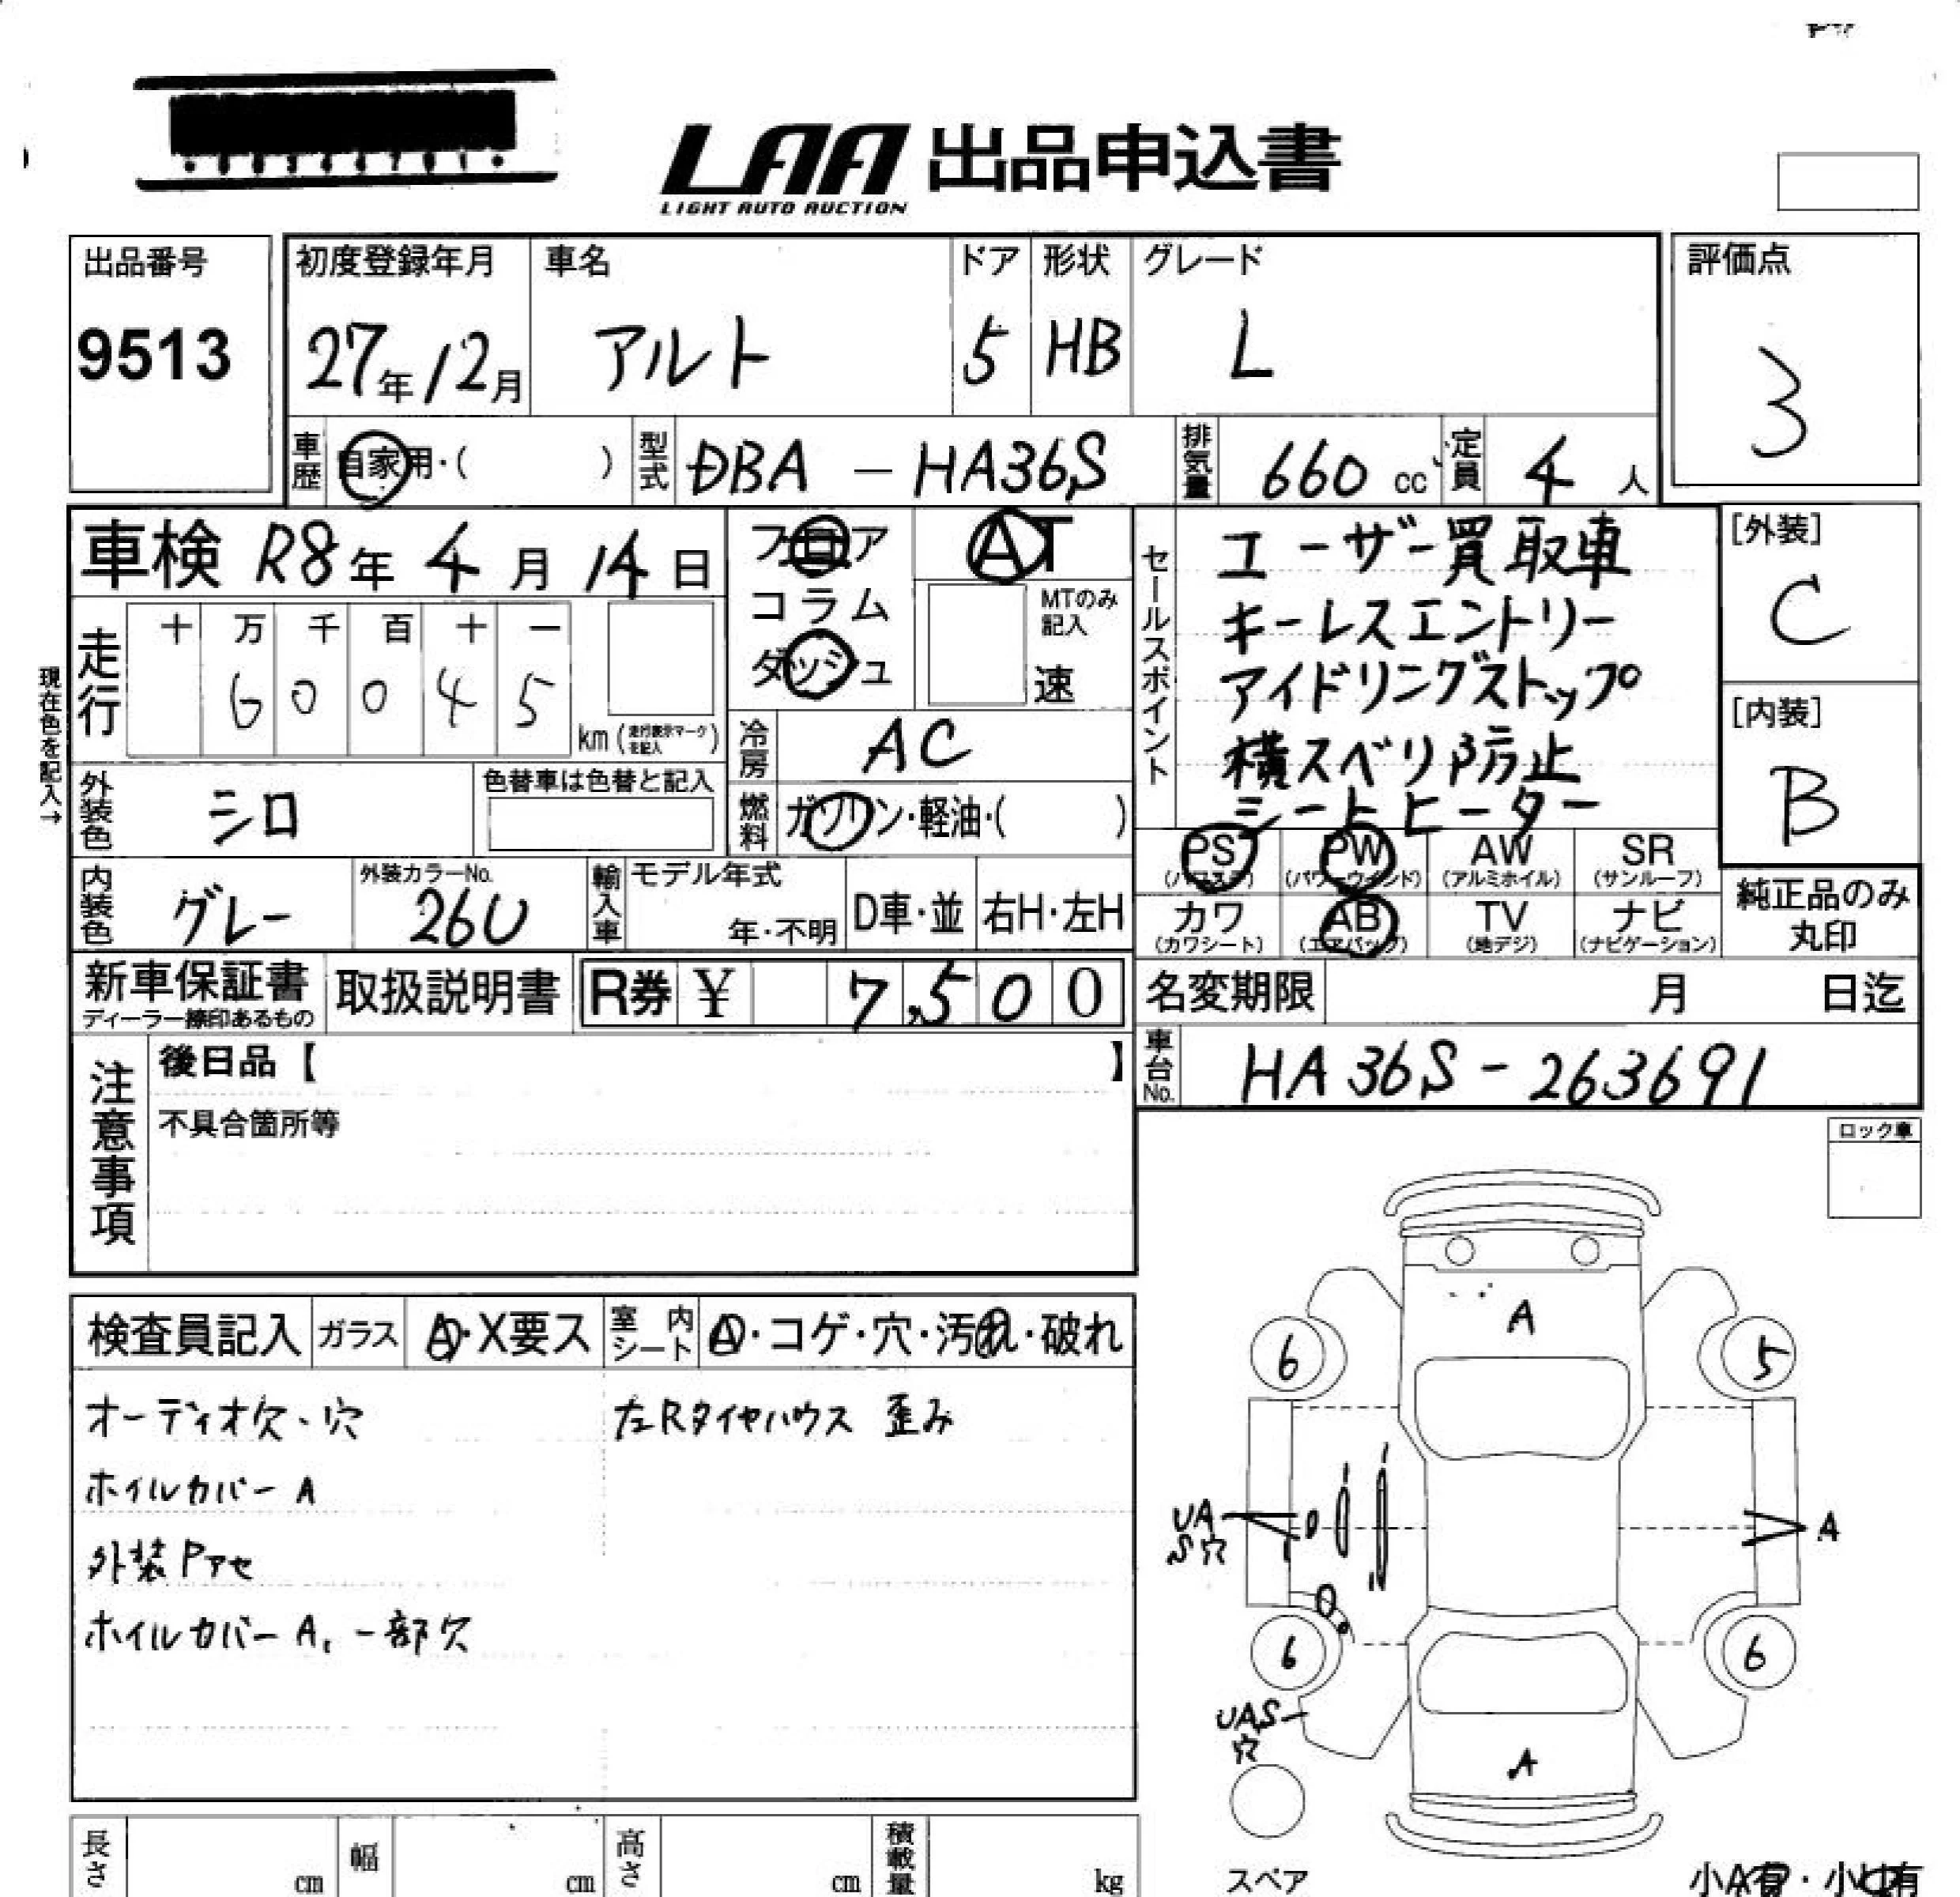 LAA 出品申込書
LIGHT AUTO AUCTION
出品番号
9513
初度登録年月
27年12月
車名
アルト
ドア
5
形状
HB
グレード
L
評価点
3
車歴
自家用・( )
型式
DBA - HA36S
排気量
660 cc
定員
4 人
車検 R8年 4月 14日
走行
十 万 千 百 十 一
6 0 0 4 5
km (走行表示マークを記入)
現在色を記入→
フロア
コラム
ダッシュ
AT
MTのみ記入
速
冷房
AC
燃料
ガソリン・軽油・( )
外装色
シロ
色替車は色替と記入
内装色
グレー
外装カラーNo.
26U
輸入車
モデル年式
年・不明
D車・並
右H・左H
セールスポイント
ユーザー買取車
キーレスエントリー
アイドリングストップ
横スベリ防止
シートヒーター
[外装]
C
[内装]
B
PS (パワステ)
PW (パワーウインド)
AW (アルミホイル)
SR (サンルーフ)
カワ (カワシート)
AB (エアバッグ)
TV (地デジ)
ナビ (ナビゲーション)
純正品のみ
丸印
新車保証書
ディーラー捺印あるもの
取扱説明書
R券 ¥ 7,500
名変期限 月 日迄
車台No.
HA36S-263691
注意事項
後日品【 】
不具合箇所等
ロック車
検査員記入
ガラス
A・X要ス
室内シート
A・コゲ・穴・汚れ・破れ
オーディオ欠・穴
左Rタイヤハウス 歪み
ホイルカバー A
外装Pアセ
ホイルカバー A, 一部欠
A
6
5
UA
S穴
A
6
6
UAS
穴
A
スペア
長さ cm
幅 cm
高さ cm
積載量 kg